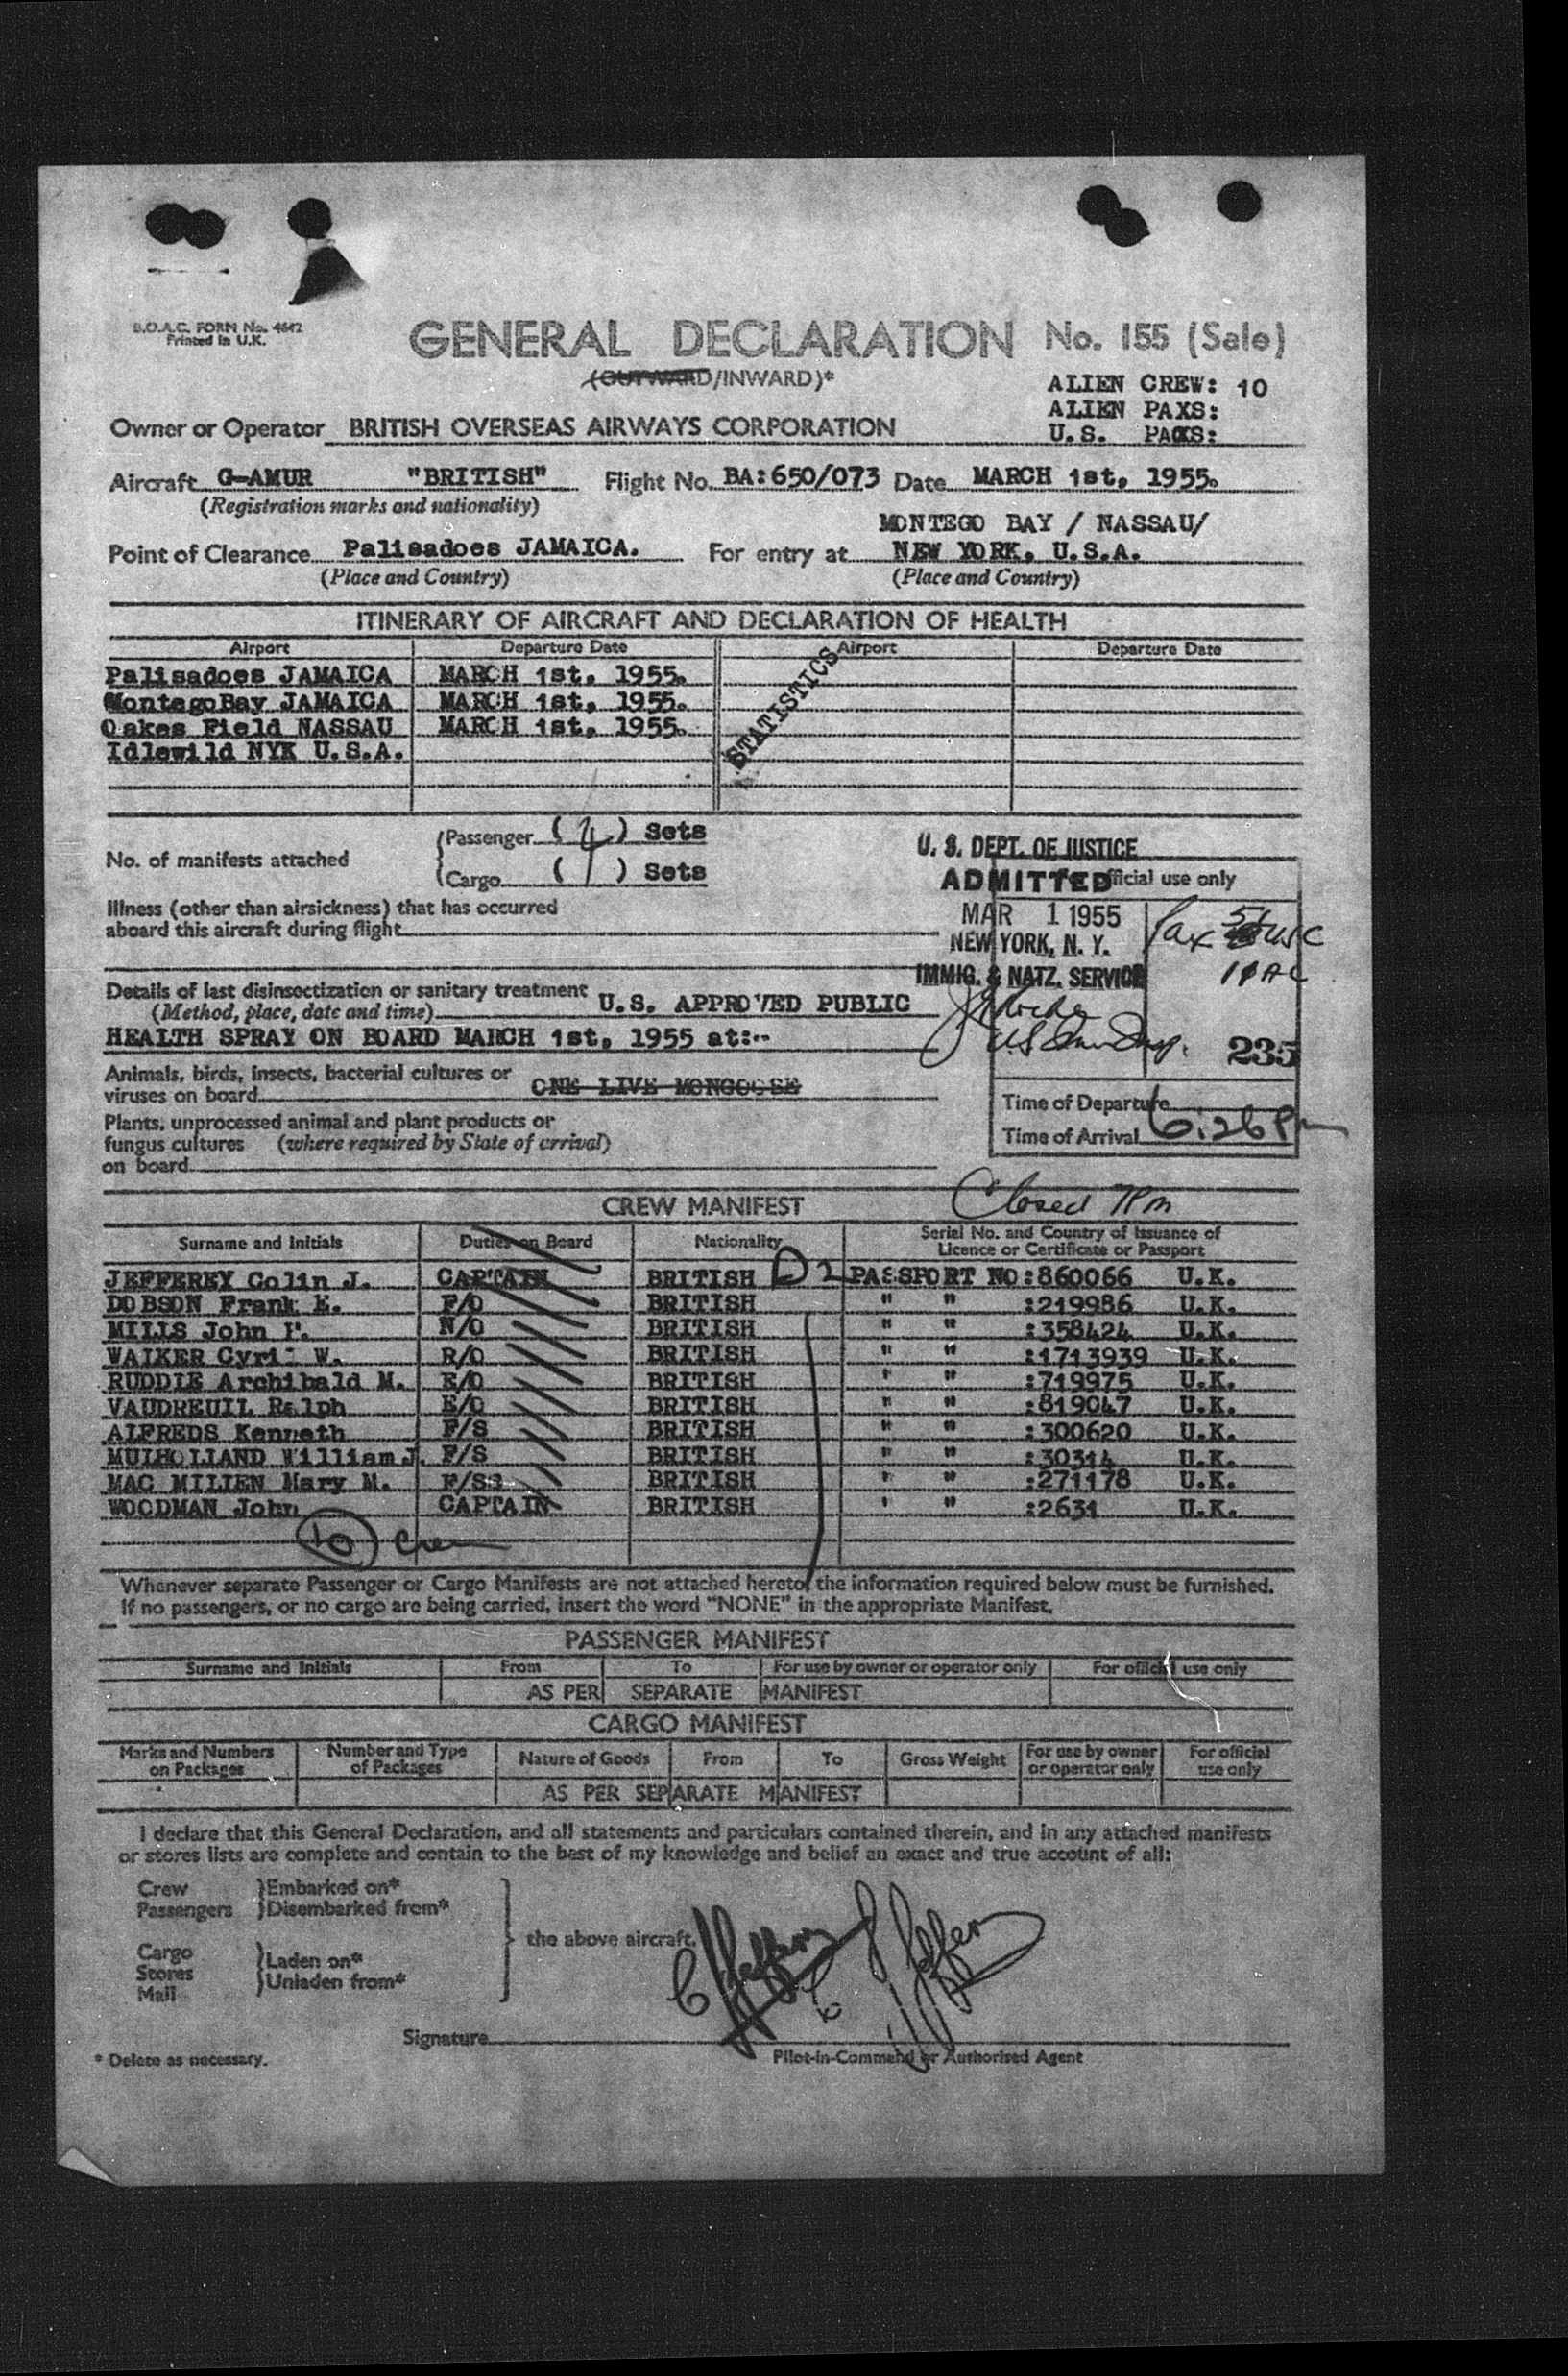 B.O.A.C. FORM No. 4642
Printed in U.K.
GENERAL DECLARATION No. 155 (Sale)
(OUTWARD/INWARD)*
ALIEN CREW: 10
ALIEN PAXS:
Owner or Operator BRITISH OVERSEAS AIRWAYS CORPORATION U.S. PAXS:
Aircraft G-AMUR "BRITISH" Flight No. BA:650/073 Date MARCH 1st, 1955.
(Registration marks and nationality)
MONTEGO BAY / NASSAU/
Point of Clearance Palisadoes JAMAICA. For entry at NEW YORK, U.S.A.
(Place and Country) (Place and Country)
ITINERARY OF AIRCRAFT AND DECLARATION OF HEALTH
Airport Departure Date Airport Departure Date
Palisadoes JAMAICA MARCH 1st, 1955.
MontegoBay JAMAICA MARCH 1st, 1955.
Oakes Field NASSAU MARCH 1st, 1955.
Idlewild NYK U.S.A.
STATISTICS
No. of manifests attached
Passenger (4) Sets
Cargo (1) Sets
U. S. DEPT. OF JUSTICE
ADMITTED
official use only
MAR 1 1955
NEW YORK, N. Y.
IMMIG. & NATZ. SERVICE
Pax USC
AC
U.S. Imm Insp.
235
Illness (other than airsickness) that has occurred
aboard this aircraft during flight
Details of last disinsectization or sanitary treatment
(Method, place, date and time) U.S. APPROVED PUBLIC
HEALTH SPRAY ON BOARD MARCH 1st, 1955 at:--
Animals, birds, insects, bacterial cultures or
viruses on board ONE LIVE MONGOOSE
Plants, unprocessed animal and plant products or
fungus cultures (where required by State of arrival)
on board
Time of Departure
Time of Arrival 6:26 Pm
Closed 7Pm
CREW MANIFEST
Surname and Initials Duties on Board Nationality Serial No. and Country of Issuance of
Licence or Certificate or Passport
JEFFEREY Colin J. CAPTAIN BRITISH D2 PASSPORT NO:860066 U.K.
DOBSON Frank E. F/O BRITISH " " :219986 U.K.
MILLS John P. N/O BRITISH " " :358424 U.K.
WALKER Cyril W. R/O BRITISH " " :1713939 U.K.
RUDDIE Archibald M. E/O BRITISH " " :719975 U.K.
VAUDREUIL Ralph E/O BRITISH " " :819047 U.K.
ALFREDS Kenneth F/S BRITISH " " :300620 U.K.
MULHOLLAND William J. F/S BRITISH " " :30314 U.K.
MAC MILLEN Mary M. F/SS BRITISH " " :271178 U.K.
WOODMAN John CAPTAIN BRITISH " " :2631 U.K.
10 Crew
Whenever separate Passenger or Cargo Manifests are not attached hereto, the information required below must be furnished.
If no passengers, or no cargo are being carried, insert the word "NONE" in the appropriate Manifest.
PASSENGER MANIFEST
Surname and Initials From To For use by owner or operator only For official use only
AS PER SEPARATE MANIFEST
CARGO MANIFEST
Marks and Numbers on Packages Number and Type of Packages Nature of Goods From To Gross Weight For use by owner or operator only For official use only
AS PER SEPARATE MANIFEST
I declare that this General Declaration, and all statements and particulars contained therein, and in any attached manifests
or stores lists are complete and contain to the best of my knowledge and belief an exact and true account of all:
Crew } Embarked on*
Passengers } Disembarked from*
the above aircraft.
Cargo } Laden on*
Stores } Unladen from*
Mail
C J Jeffery C J Jeffery
Signature
* Delete as necessary. Pilot-in-Command or Authorised Agent